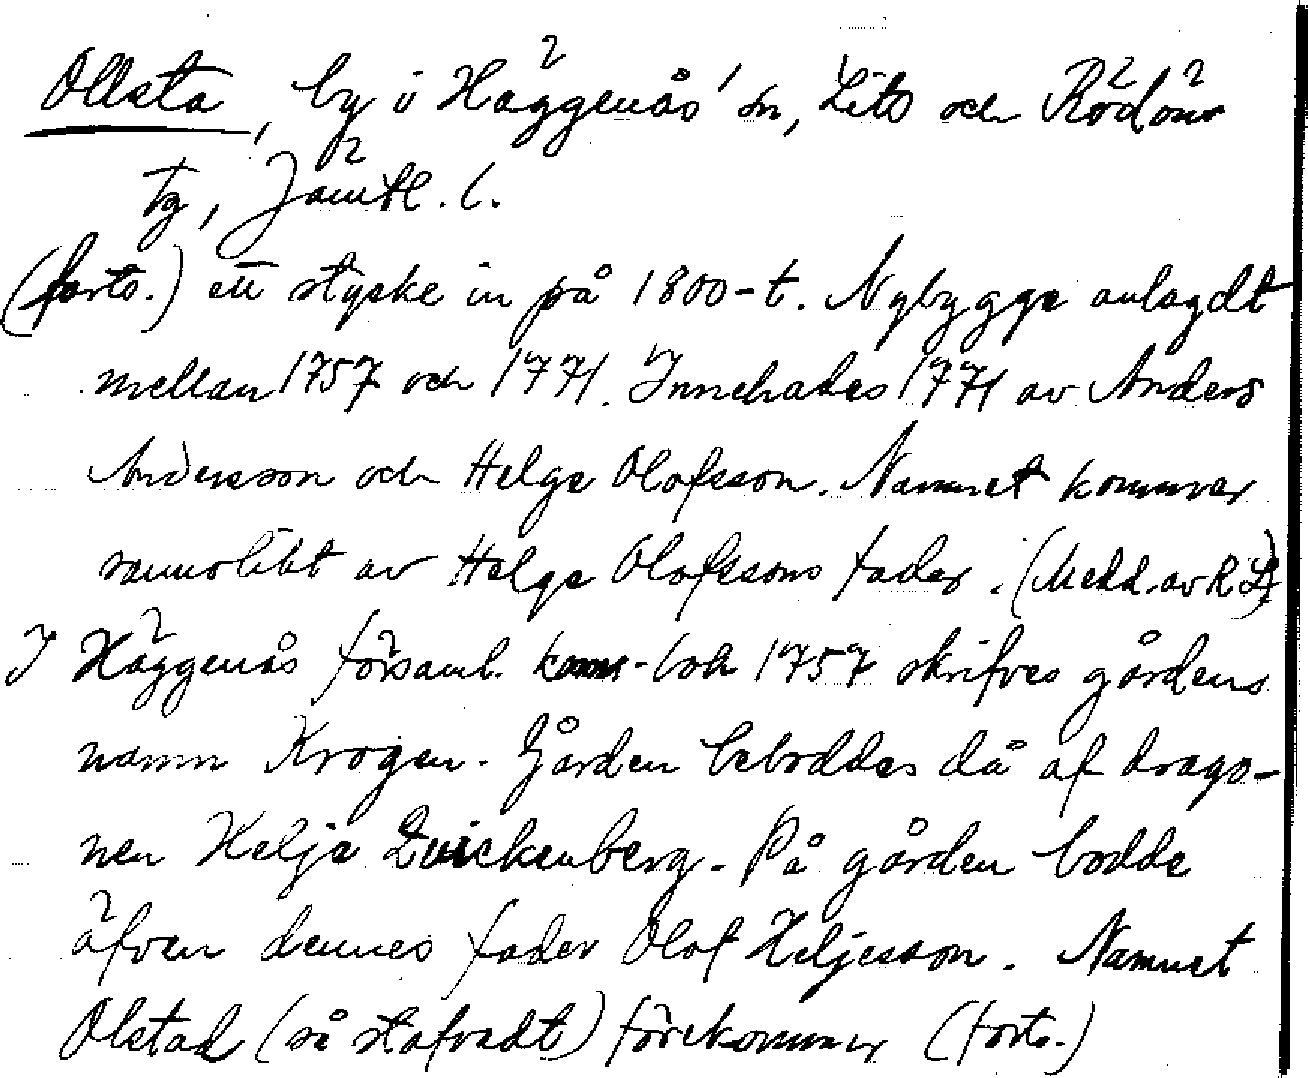 Ollsta, by i Häggenås' sn, Lits och Rödöns
tg, Jämtl. l.
(forts.) ett stycke in på 1800-t. Nybygge anlagdt
mellan 1757 och 1771. Innehades 1771 av Anders
Andersson och Helge Olofsson. Namnet kommer
sannolikt av Helge Olofssons fader. (Medd. av R L)
I Häggenås församl. kom.-bok 1757 skrifves gårdens
namn Krogen. Gården beboddes då af drago-
nen Helje Qvickenberg. På gården bodde
äfven dennes fader Olof Heljesson. Namnet
Olstad (så stafvadt) förekommer (forts.)